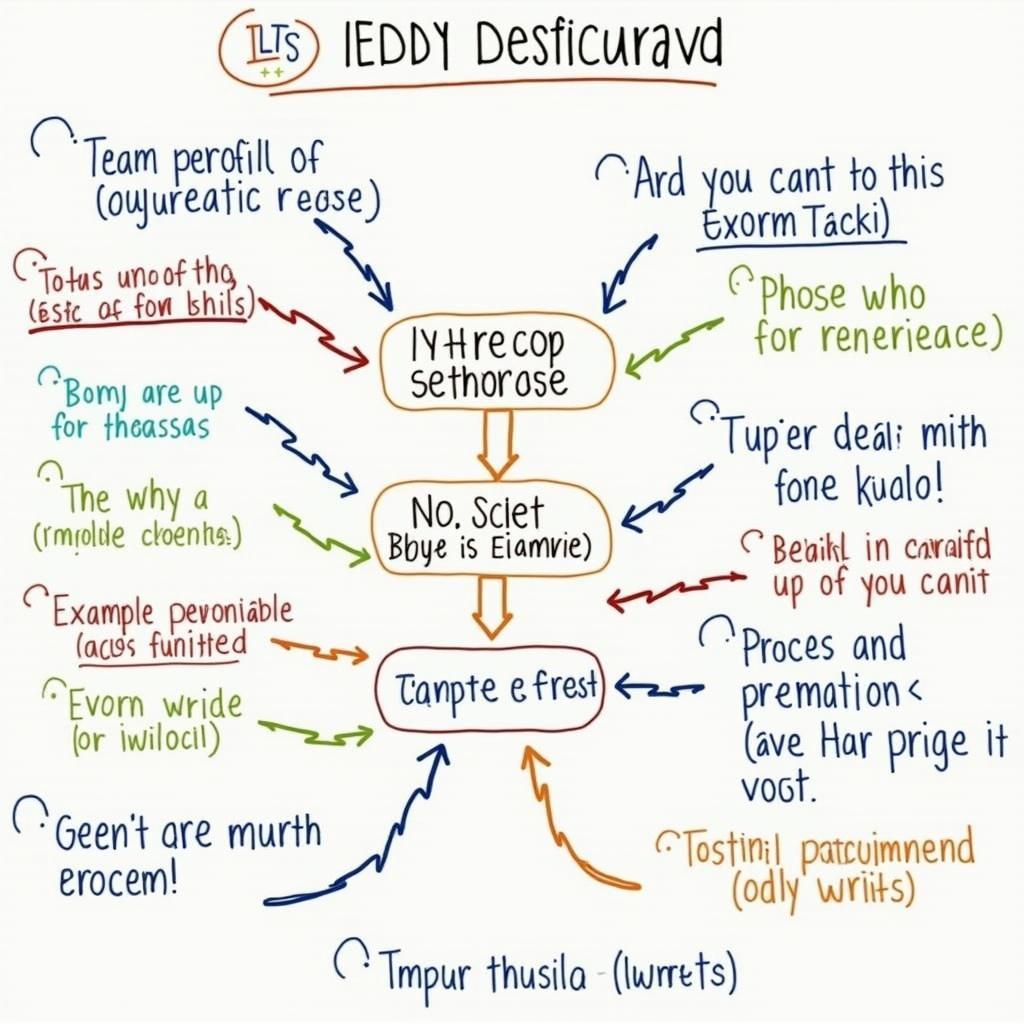 ILTS
IEDDY Desficuravd
Team perofill of
(oujureatic reose)
Ard you cant to this
Exorm Tacki)
Totus uno of thq
(ësic of fow bhils)
Phose who
for renerieace)
IYHrecop
sethorose
Bomj are up
for thoassas
Tup'er deali mith
fone kualo!
The why a
(rmplde cloenhs.)
No. Sciet
Bbye is Eiamvie)
Bebikl in cararafd
up of you canit
Example pevoniable
(acus funitted
Proces and
premation <
(ave Har prige it
voot.
Tanpte e frest
Evorn wride
(or iwilocil)
Geen't are murth
erocem!
Tostinil patcuimnend
(odly wriits)
Tmpur thusila - (lwrrets)